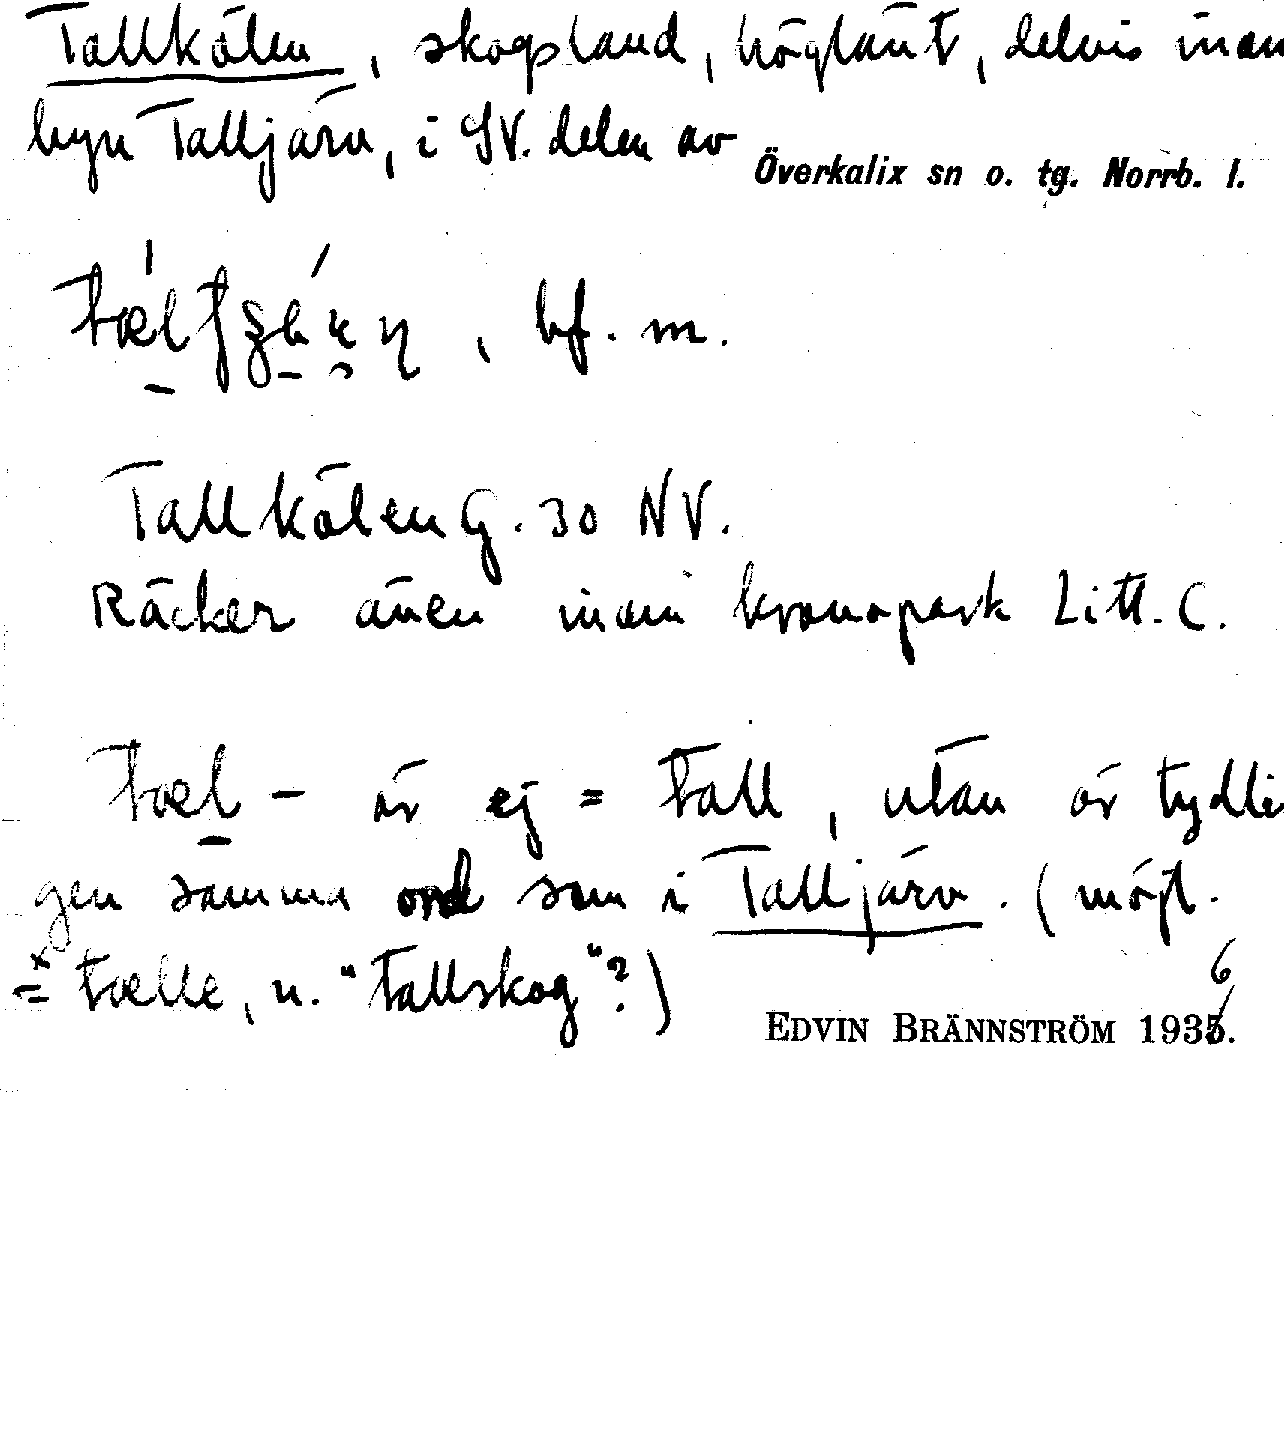 Tallkölen, skogsland, höglänt, delvis inom
byn Talljärv, i SV. delen av Överkalix sn o. tg. Norrb. l.
, bf. m.
Tallkölen G. 30 NV.
Räcker även inom kronopark Litt. C.
tæl - är ej = tall, utan är tydli
gen samma ord som i Talljärv. (möjl.
=* tælle, n. "tallskog"?)
EDVIN BRÄNNSTRÖM 1936.